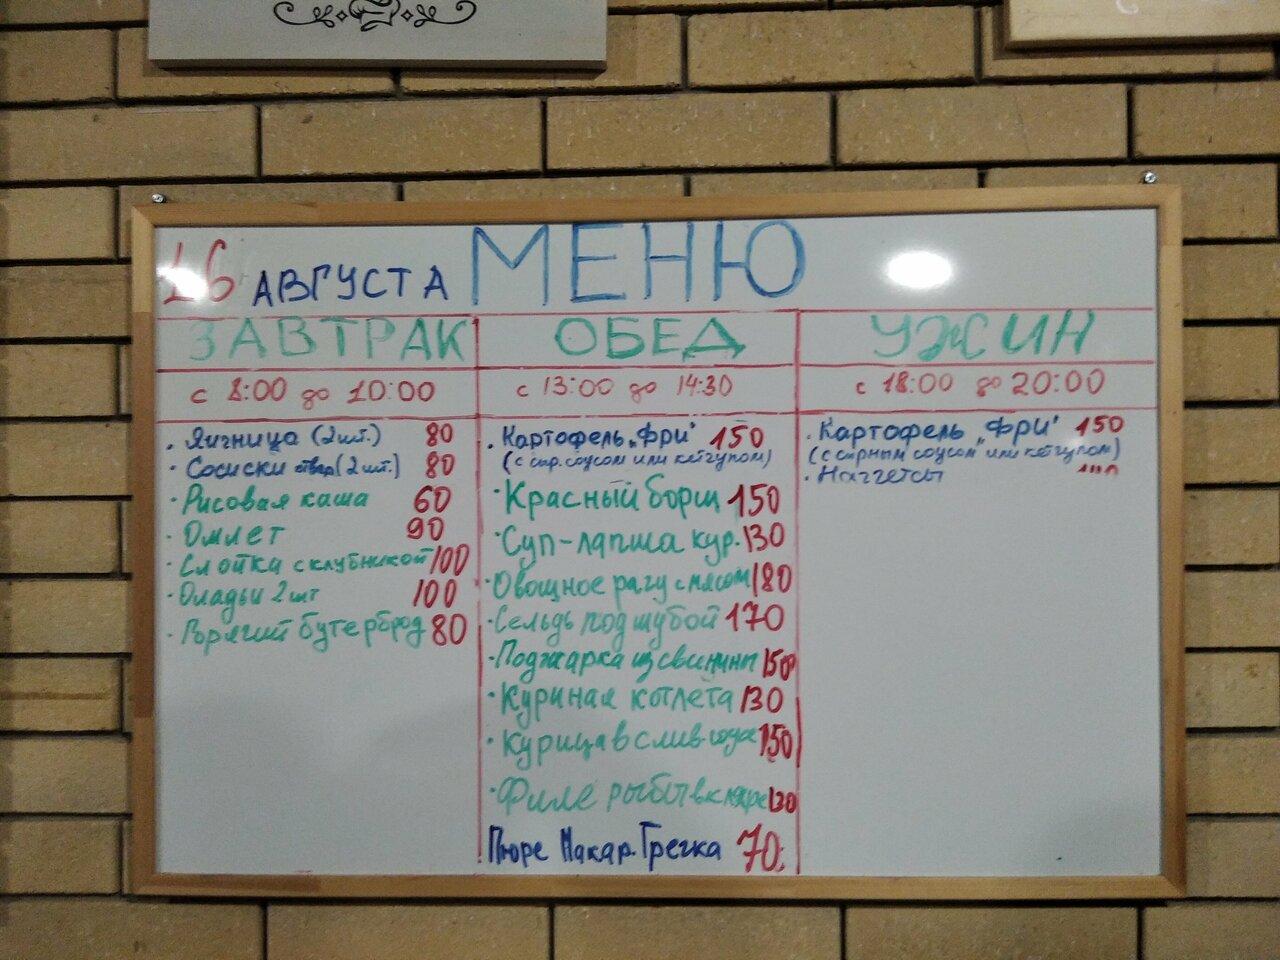 16 АВГУСТА МЕНЮ
ЗАВТРАК
с 8:00 до 10:00
· Яичница (2 шт.) 80
· Сосиски отвар (2 шт.) 80
· Рисовая каша 60
· Омлет 90
· Слойка с клубникой 100
· Оладьи 2 шт 100
· Горячий бутерброд 80
ОБЕД
с 13:00 до 14:30
· Картофель „Фри" 150
(с сыр. соусом или кетчупом)
· Красный борщ 150
· Суп-лапша кур. 130
· Овощное рагу с мясом 180
· Сельдь под шубой 170
· Поджарка из свинины 150
· Куриная котлета 130
· Курица в слив соусе 150
· Филе рыбы в кляре 130
Пюре Макар. Гречка 70
УЖИН
с 18:00 до 20:00
· Картофель „Фри" 150
(с сырным соусом или кетчупом)
· Наггетсы